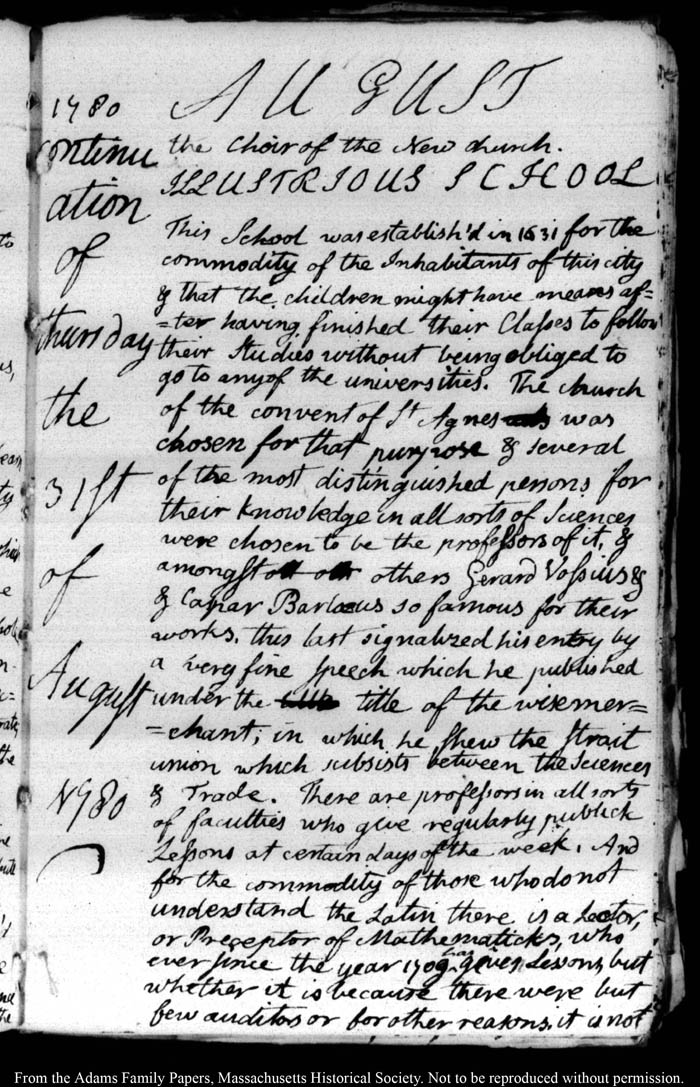 AUGUST
1780
continu
ation
of
thursday
the
31st
of
August
1780
the Choir of the New church.
ILLUSTRIOUS SCHOOL
This School was establish'd in 1631 for the
commodity of the Inhabitants of this city
& that the children might have means af=
=ter having finished their Classes to follow
their Studies without being obliged to
go to any of the universities. The church
of the convent of St Agnes was
chosen for that purpose & several
of the most distinguished persons for
their knowledge in all sorts of Sciences
were chosen to be the professors of it, &
amongst others Gerard Vossius &
& Caspar Barlæus so famous for their
works. this last signalized his entry by
a very fine speech which he published
under the title of the wise mer=
=chant; in which he shew the strait
union which subsists between the Sciences
& Trade. There are professors in all sorts
of faculties who give regularly publick
Lessons at certain days of the week. And
for the commodity of those who do not
understand the Latin there is a Lector,
or Preceptor of Mathematicks, who
ever since the year 1709 has given Lessons, but
whether it is because there were but
few auditors or for other reasons, it is not
From the Adams Family Papers, Massachusetts Historical Society. Not to be reproduced without permission.